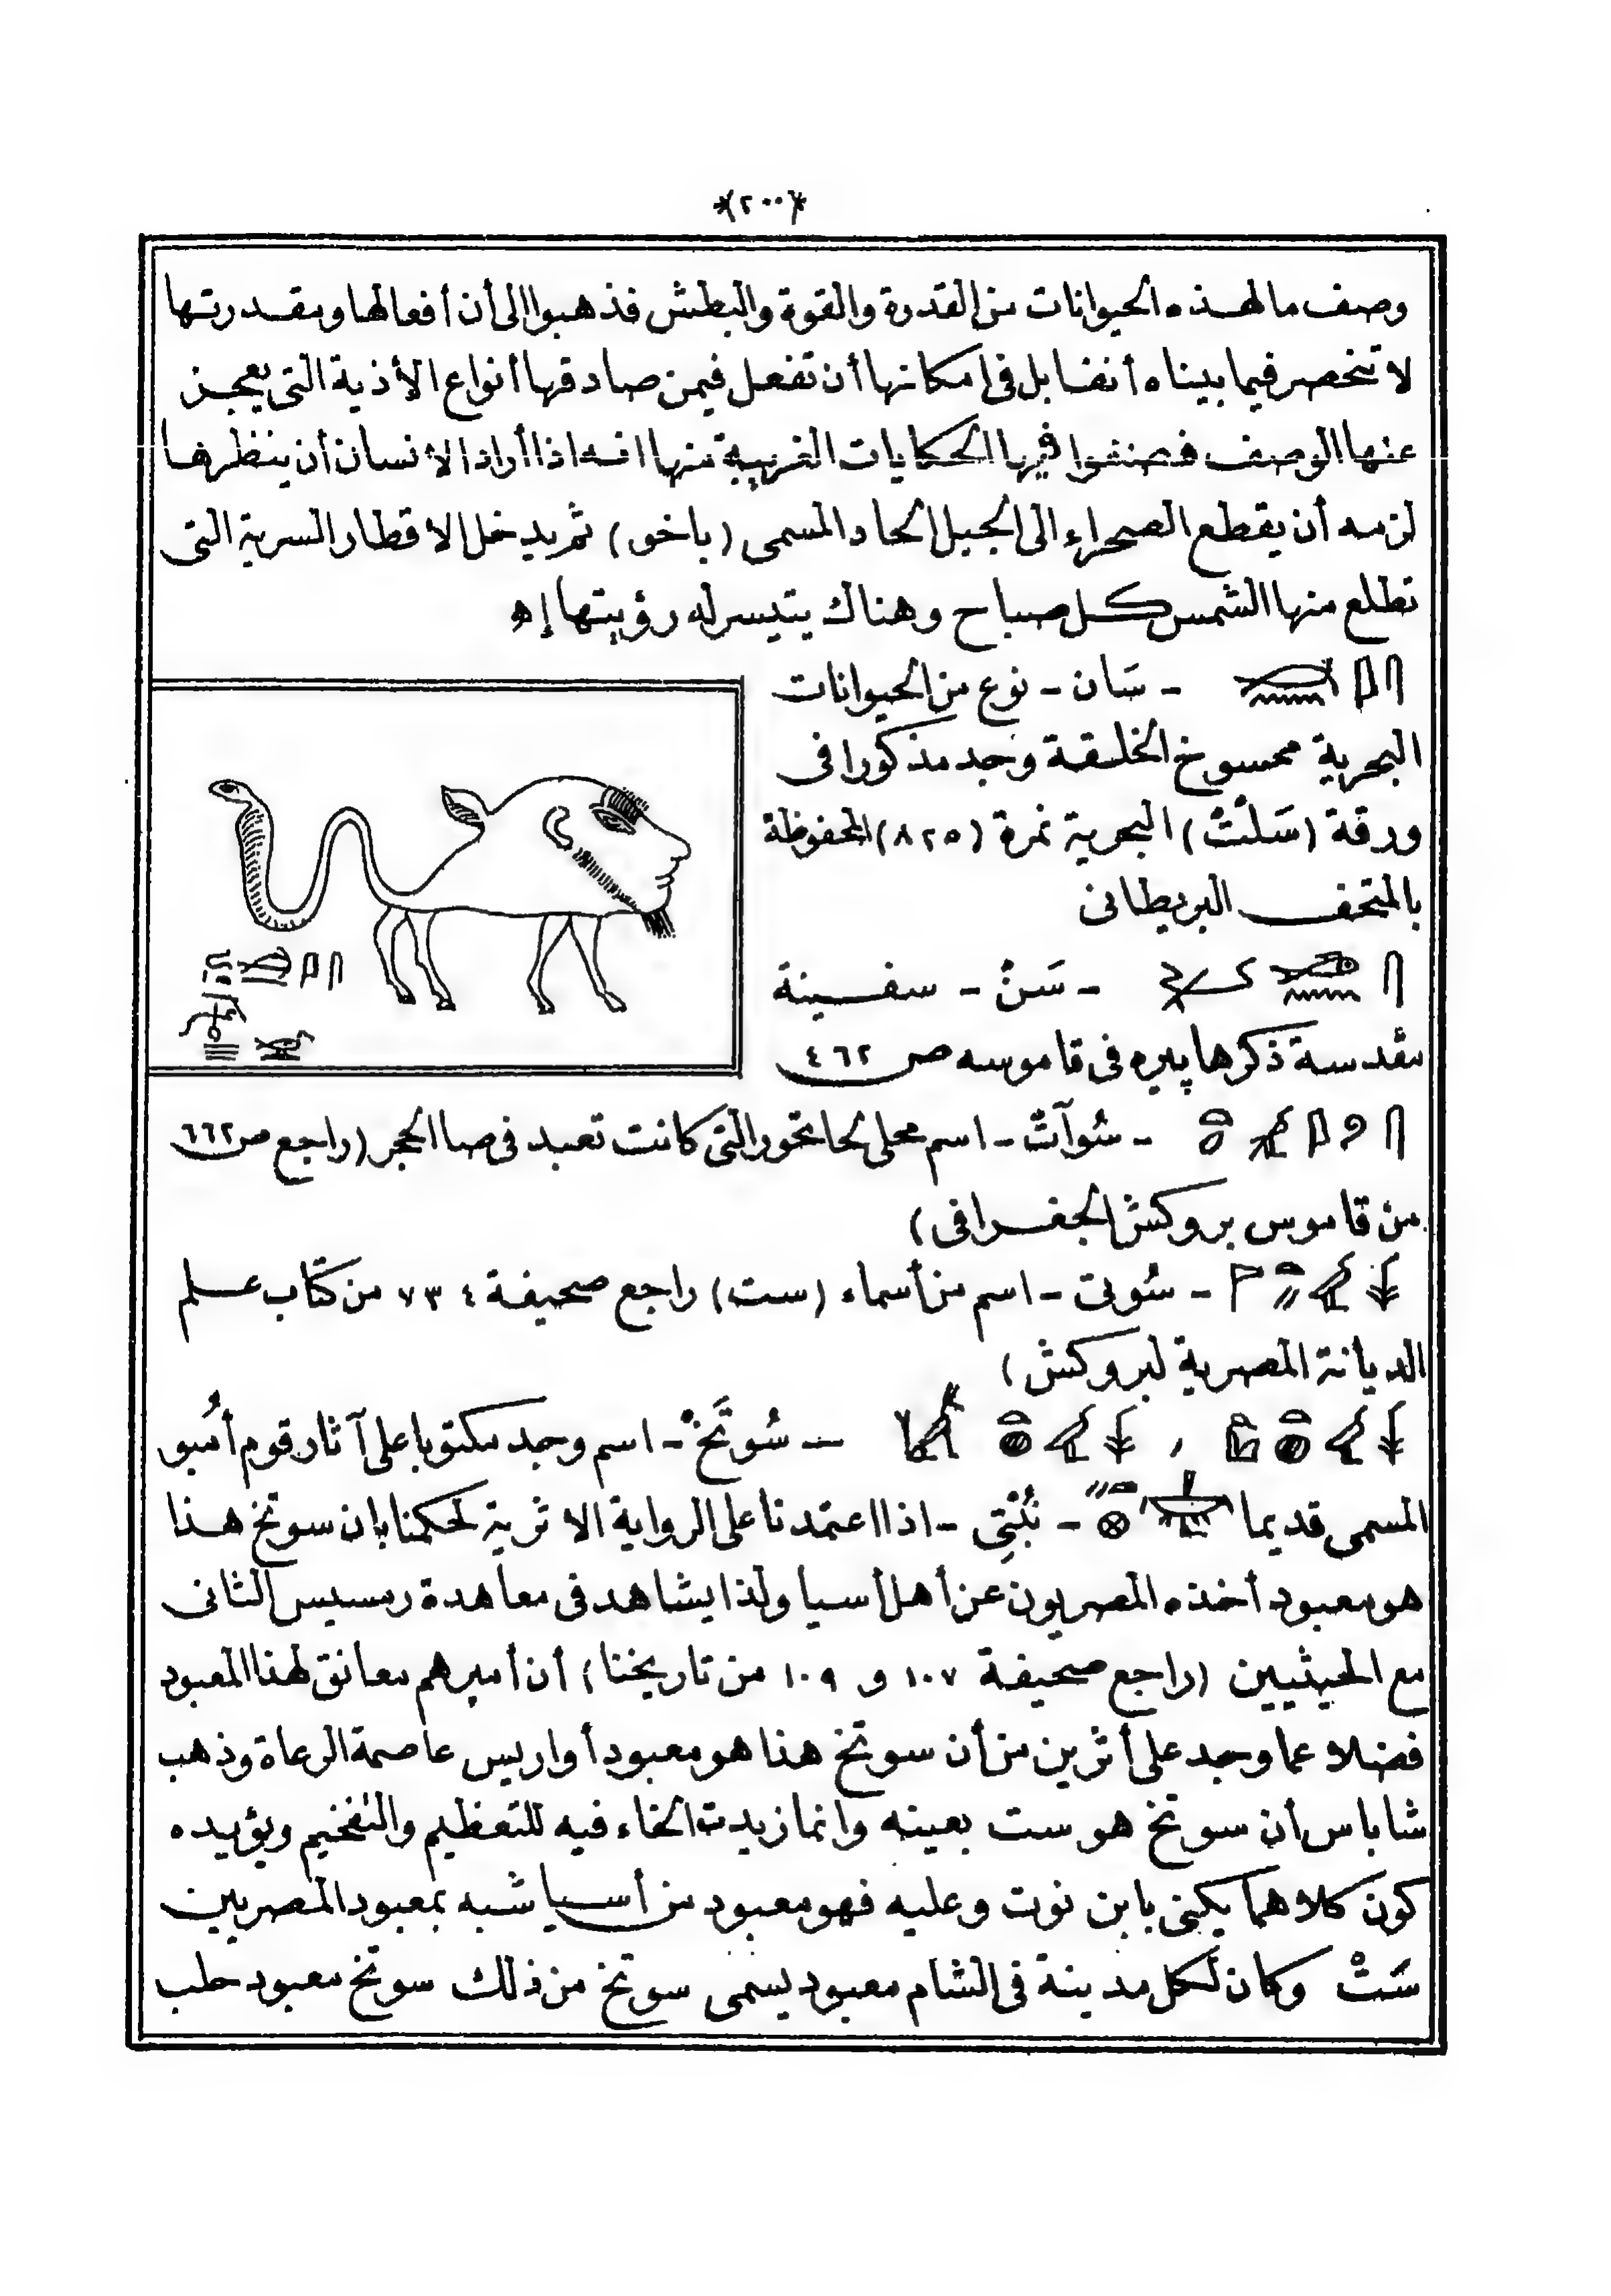 *(٢٠٠)*
وصف ما لهذه الحيوانات من القدرة والقوة والبطش فذهبوا الى أن أفعالها ومقدرتها
لا تنحصر فيما بيناه أنفا بل فى امكانها أن تفعل فيمن صادقها أنواع الأذية التى يعجز
عنها الوصف فصنفوا فيها الحكايات الغريبة منها انه اذا أراد الانسان أن ينظرها
لزمه أن يقطع الصحراء الى الجبل الحاد المسمى (باخو) ثم يدخل الاقطار السرية التى
تطلع منها الشمس كل صباح وهناك يتيسر له رؤيتها إه
- سَان - نوع من الحيوانات
البحرية ممسوخ الخلقة وجد مذكورا فى
ورقة (سَلْتْ) البحرية نمرة (٨٢٥) المحفوظة
بالمتحف البريطانى
- سَنْ - سفينة
مقدسة ذكرها پيره فى قاموسه ص ٤٦٢
- سُوآتْ - اسم محلى لحاتحور التى كانت تعبد فى صا الحجر (راجع ص ٦٦٢
من قاموس بروكش الجغرافى)
- سُوتى - اسم من أسماء (ست) راجع صحيفة ٧٣٤ من كتاب علم
الديانة المصرية لبروكش)
، - سُوتَخْ - اسم وجد مكتوبا على آثار قوم أمبو
المسمى قديما - نُبْتِى - اذا اعتمدنا على الرواية الاثرية لحكمنا بان سوتخ هذا
هو معبود أخذه المصريون عن أهل أسيا ولذا يشاهد فى معاهدة رمسيس الثانى
مع الحيثيين (راجع صحيفة ١٠٧ و ١٠٩ من تاريخنا) أن أميرهم معانق لهذا المعبود
فضلا عما وجد على أثرين من أن سوتخ هذا هو معبود أواريس عاصمة الرعاة وذهب
شاباس أن سوتخ هو ست بعينه وانما زيدت الخاء فيه للتعظيم والتفخيم ويؤيده
كون كلاهما يكنى بابن نوت وعليه فهو معبود من أسيا شبه بمعبود المصريين
سَتْ وكان لكل مدينة فى الشام معبود يسمى سوتخ من ذلك سوتخ معبود حلب